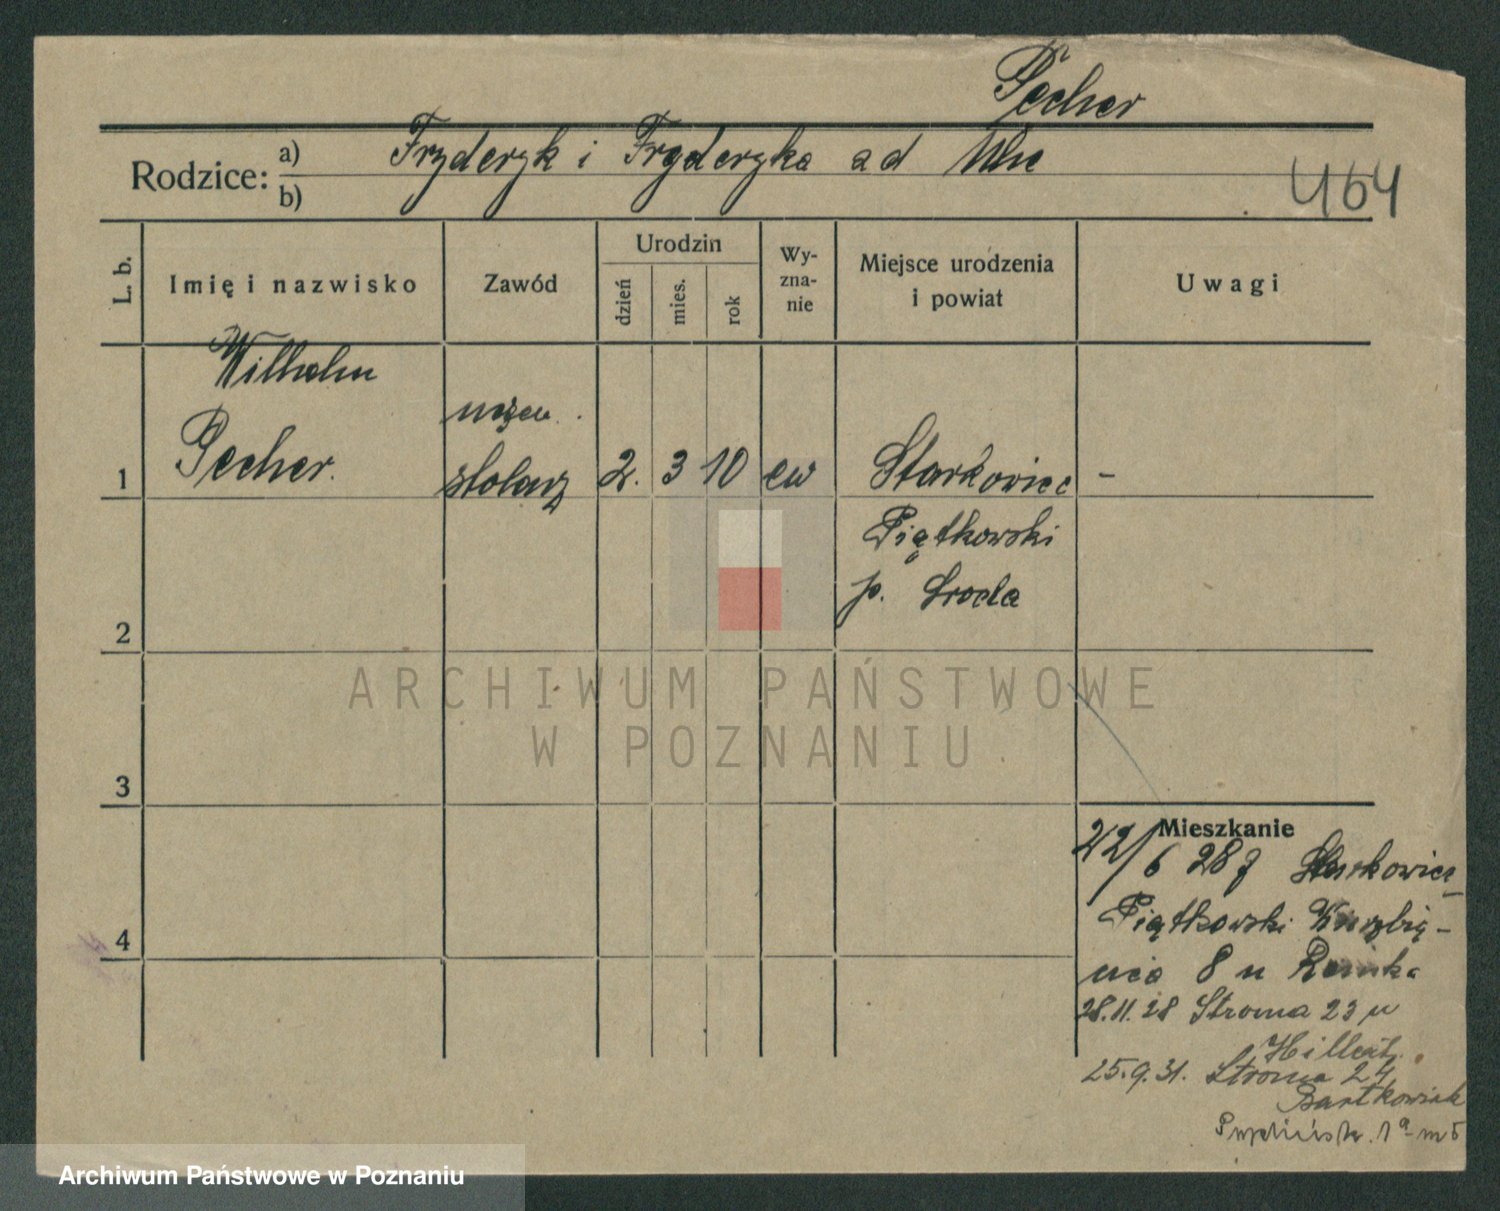 Pecher
Rodzice: a) Fryderyk i Fryderyka ad
b)
464
L. b. Imię i nazwisko Zawód Urodzin dzień mies. rok Wy-zna-nie Miejsce urodzenia i powiat Uwagi
Wilhelm
uczeń
1 Pecher. stolarz 2. 3 10 ew Starkowiec -
Piątkowski
p. Środa
2
3
4
ARCHIWUM PAŃSTWOWE
W POZNANIU
Mieszkanie
22/6 28 z Starkowiec
Piątkowski Wierzbię-
cica 8 u
28.11.28 Stroma 23 u
Hillert.
25.9.31. Stroma 24
Bartkowiak
Archiwum Państwowe w Poznaniu